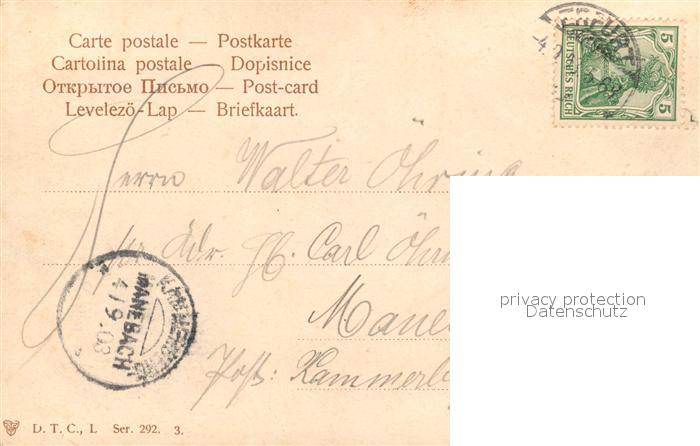 Carte postale — Postkarte
Cartolina postale — Dopisnice
Открытое Письмо — Post-card
Levelező-Lap — Briefkaart.
ERFURT
5 5
DEUTSCHES REICH
Herrn Walter Öhring
pr. Adr. H. Carl Öhr
Mane
Post: Kammerb
MANEBACH
4/9.03
privacy protection
Datenschutz
D. T. C., L. Ser. 292. 3.